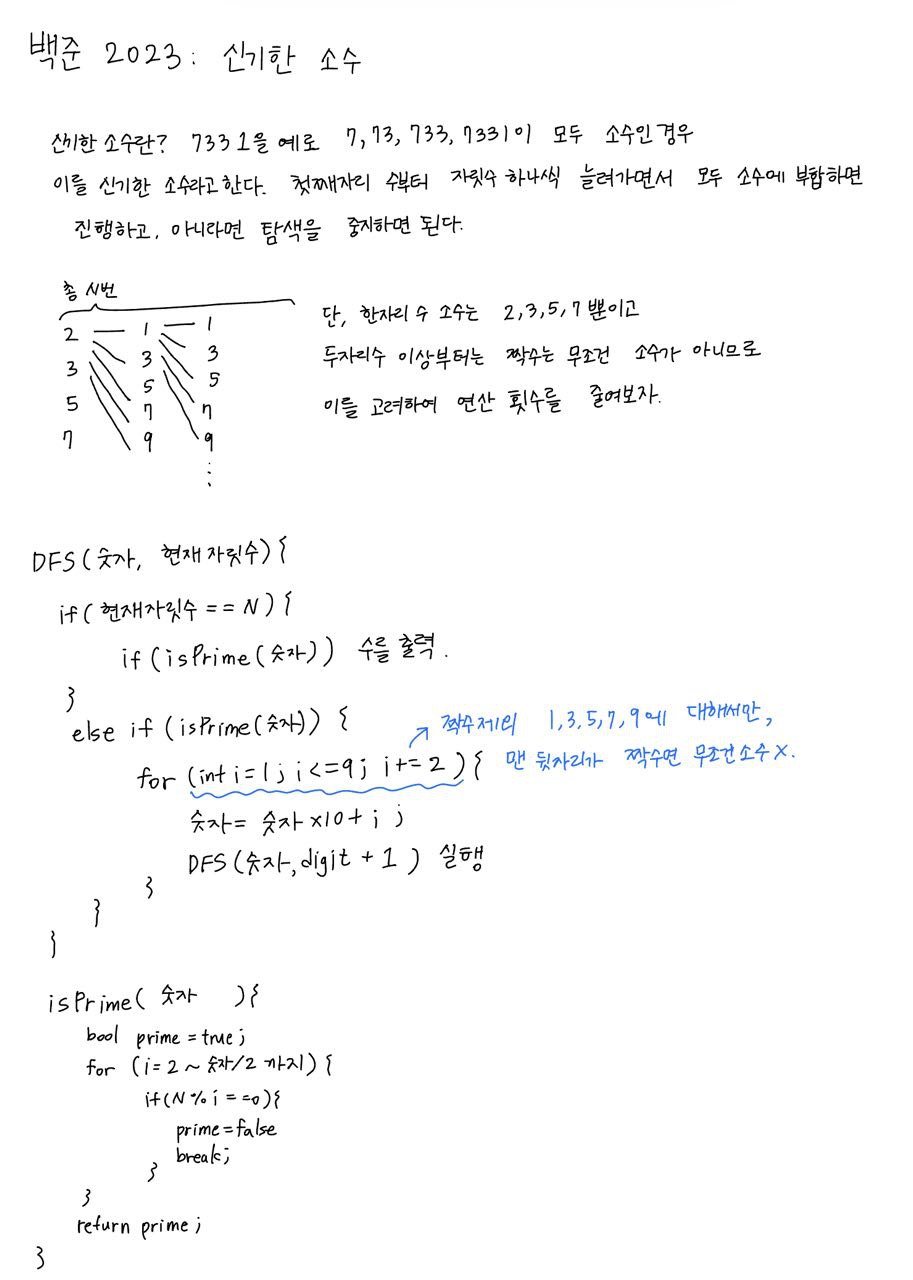 백준 2023: 신기한 소수
신기한 소수란? 7331을 예로 7, 73, 733, 7331이 모두 소수인 경우
이를 신기한 소수라고 한다. 첫째자리 수부터 자릿수 하나씩 늘려가면서 모두 소수에 부합하면
진행하고, 아니라면 탐색을 중지하면 된다.
총 N번
2 1 1
3 3 3
5 5 5
7 7 7
9 9
단, 한자리 수 소수는 2, 3, 5, 7 뿐이고
두자리수 이상부터는 짝수는 무조건 소수가 아니므로
이를 고려하여 연산 횟수를 줄여보자.
DFS(숫자, 현재 자릿수){
if(현재자릿수 == N){
if(isPrime(숫자)) 수를 출력.
}
else if (isPrime(숫자)) {
for (int i=1; i<=9; i+=2){
↗ 짝수제외 1,3,5,7,9에 대해서만,
맨 뒷자리가 짝수면 무조건소수 X.
숫자= 숫자 x10+ i ;
DFS(숫자, digit + 1 ) 실행
}
}
}
isPrime( 숫자 ){
bool prime = true;
for (i=2 ~ 숫자/2 까지) {
if(N % i ==0){
prime=false
break;
}
}
return prime;
}